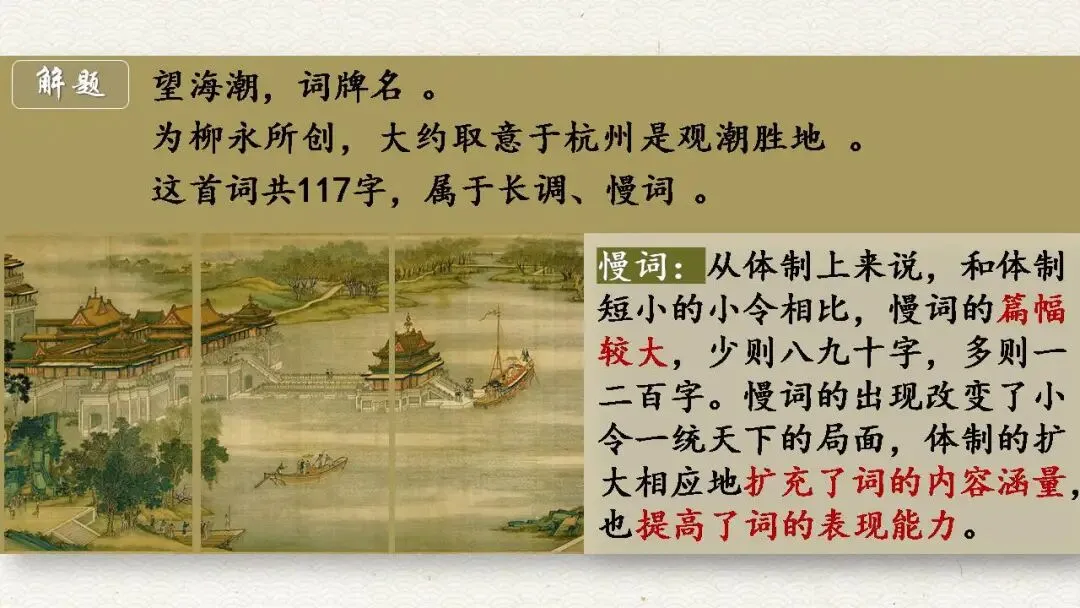 解题
望海潮，词牌名 。
为柳永所创，大约取意于杭州是观潮胜地 。
这首词共117字，属于长调、慢词 。
慢词：从体制上来说，和体制
短小的小令相比，慢词的篇幅
较大，少则八九十字，多则一
二百字。慢词的出现改变了小
令一统天下的局面，体制的扩
大相应地扩充了词的内容涵量，
也提高了词的表现能力。